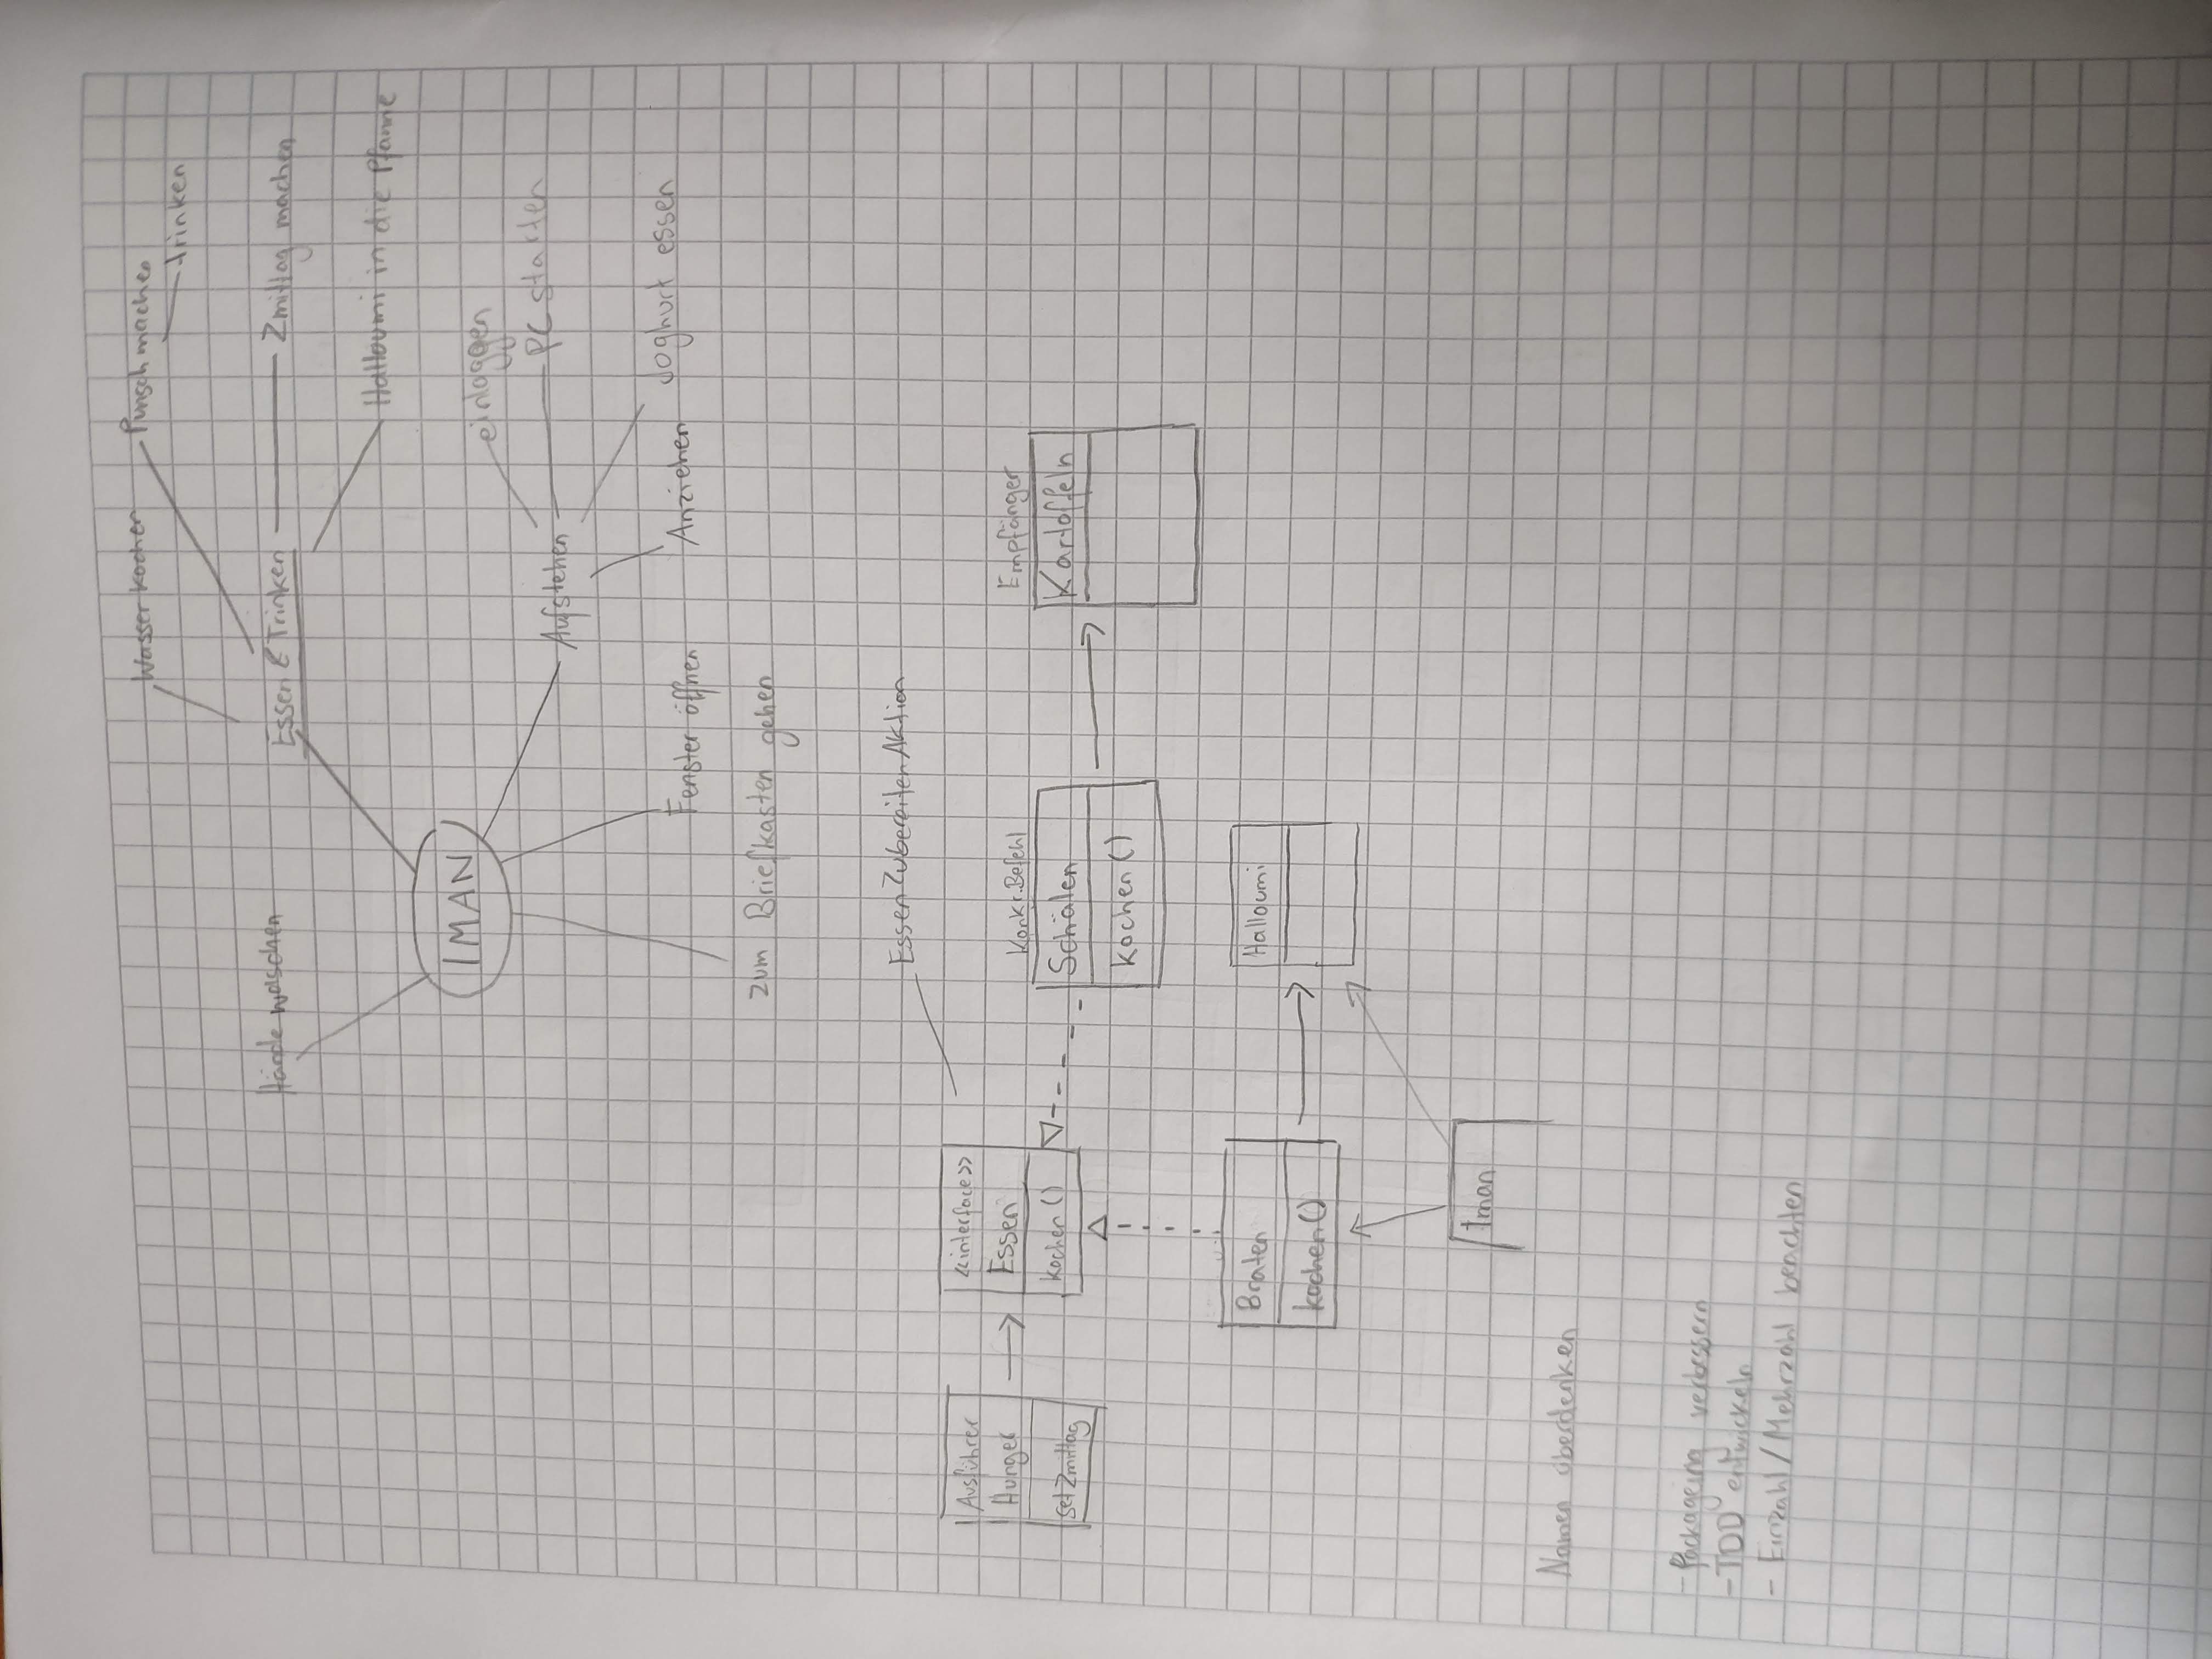 Wasser kochen
Punsch machen
trinken
Hände waschen
Essen & Trinken
Zmittag machen
Halloumi in die Pfanne
IMAN
einloggen
PC starten
Aufstehen
Joghurt essen
Anziehen
Fenster öffnen
Zum Briefkasten gehen
EssenZubereitenAktion
Ausführer
Hunger
setZmittag
<<interface>>
Essen
kochen ()
Konkr. Befehl
Schälen
kochen ()
Empfänger
Kartoffeln
Braten
kochen ()
Halloumi
Iman
Namen überdenken
- Packageing verbessern
- TDD entwickeln
- Einzahl / Mehrzahl beachten